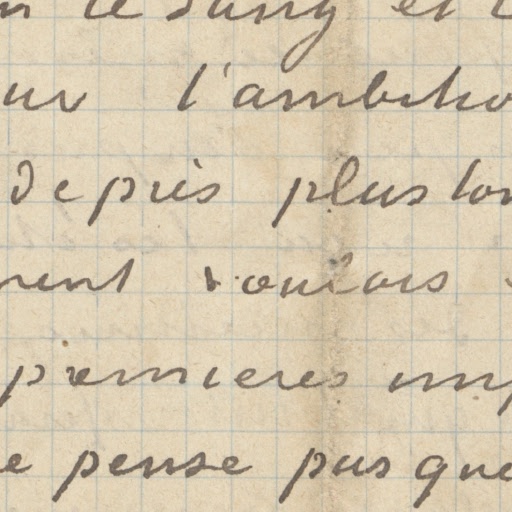 le sang et
l'ambitio
depuis plus lon
ment voulais
premieres imp
e pense pas que